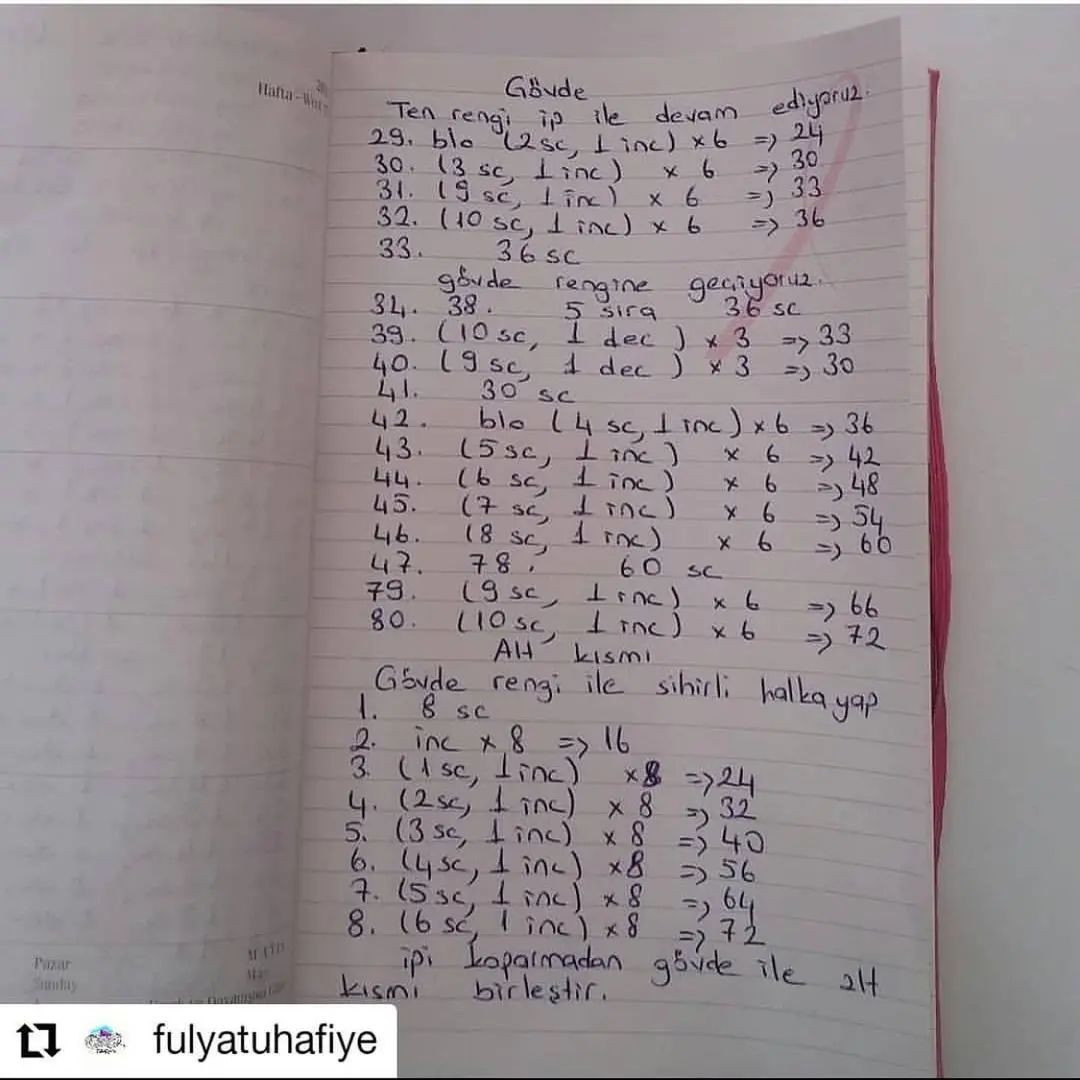 Hafta - Wee
Gövde
Ten rengi ip ile devam ediyoruz.
29. blo (2 sc, 1 inc) x 6 => 24
30. (3 sc, 1 inc) x 6 => 30
31. (9 sc, 1 inc) x 6 => 33
32. (10 sc, 1 inc) x 6 => 36
33. 36 sc
gövde rengine geçiyoruz.
34. 38. 5 sıra 36 sc
39. (10 sc, 1 dec) x 3 => 33
40. (9 sc, 1 dec) x 3 => 30
41. 30 sc
42. blo (4 sc, 1 inc) x 6 => 36
43. (5 sc, 1 inc) x 6 => 42
44. (6 sc, 1 inc) x 6 => 48
45. (7 sc, 1 inc) x 6 => 54
46. (8 sc, 1 inc) x 6 => 60
47. 78. 60 sc
79. (9 sc, 1 inc) x 6 => 66
80. (10 sc, 1 inc) x 6 => 72
Alt kısmı
Gövde rengi ile sihirli halka yap
1. 8 sc
2. inc x 8 => 16
3. (1 sc, 1 inc) x 8 => 24
4. (2 sc, 1 inc) x 8 => 32
5. (3 sc, 1 inc) x 8 => 40
6. (4 sc, 1 inc) x 8 => 56
7. (5 sc, 1 inc) x 8 => 64
8. (6 sc, 1 inc) x 8 => 72
ipi koparmadan gövde ile alt
kısmı birleştir.
Pazar
Sunday
fulyatuhafiye